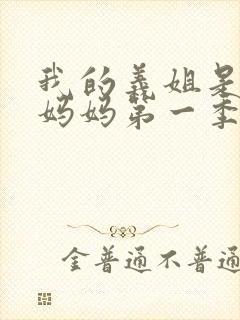 我的义姐是
妈妈第一季
金普通不普通